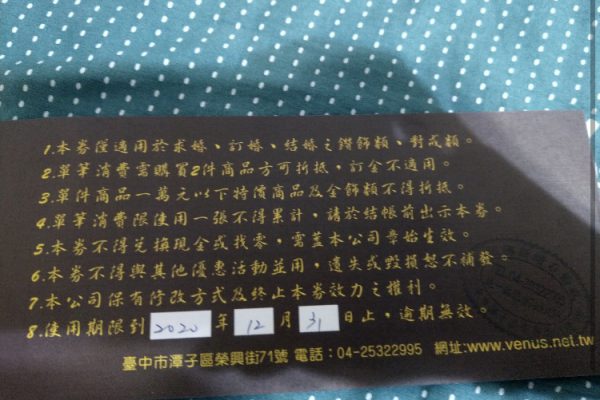 1.本券僅適用於求婚、訂婚、結婚之鑽飾類、對戒類。
2.單筆消費需購買2件商品方可折抵，訂金不適用。
3.單件商品一萬元以下特價商品及金飾類不得折抵。
4.單筆消費限使用一張不得累計，請於結帳前出示本券。
5.本券不得兌換現金或找零，需蓋本公司章始生效。
6.本券不得與其他優惠活動並用，遺失或毀損恕不補發。
7.本公司保有修改方式及終止本券效力之權利。
8.使用期限到2020年12月31日止，逾期無效。
臺中市潭子區榮興街71號 電話：04-25322995 網址:www.venus.net.tw